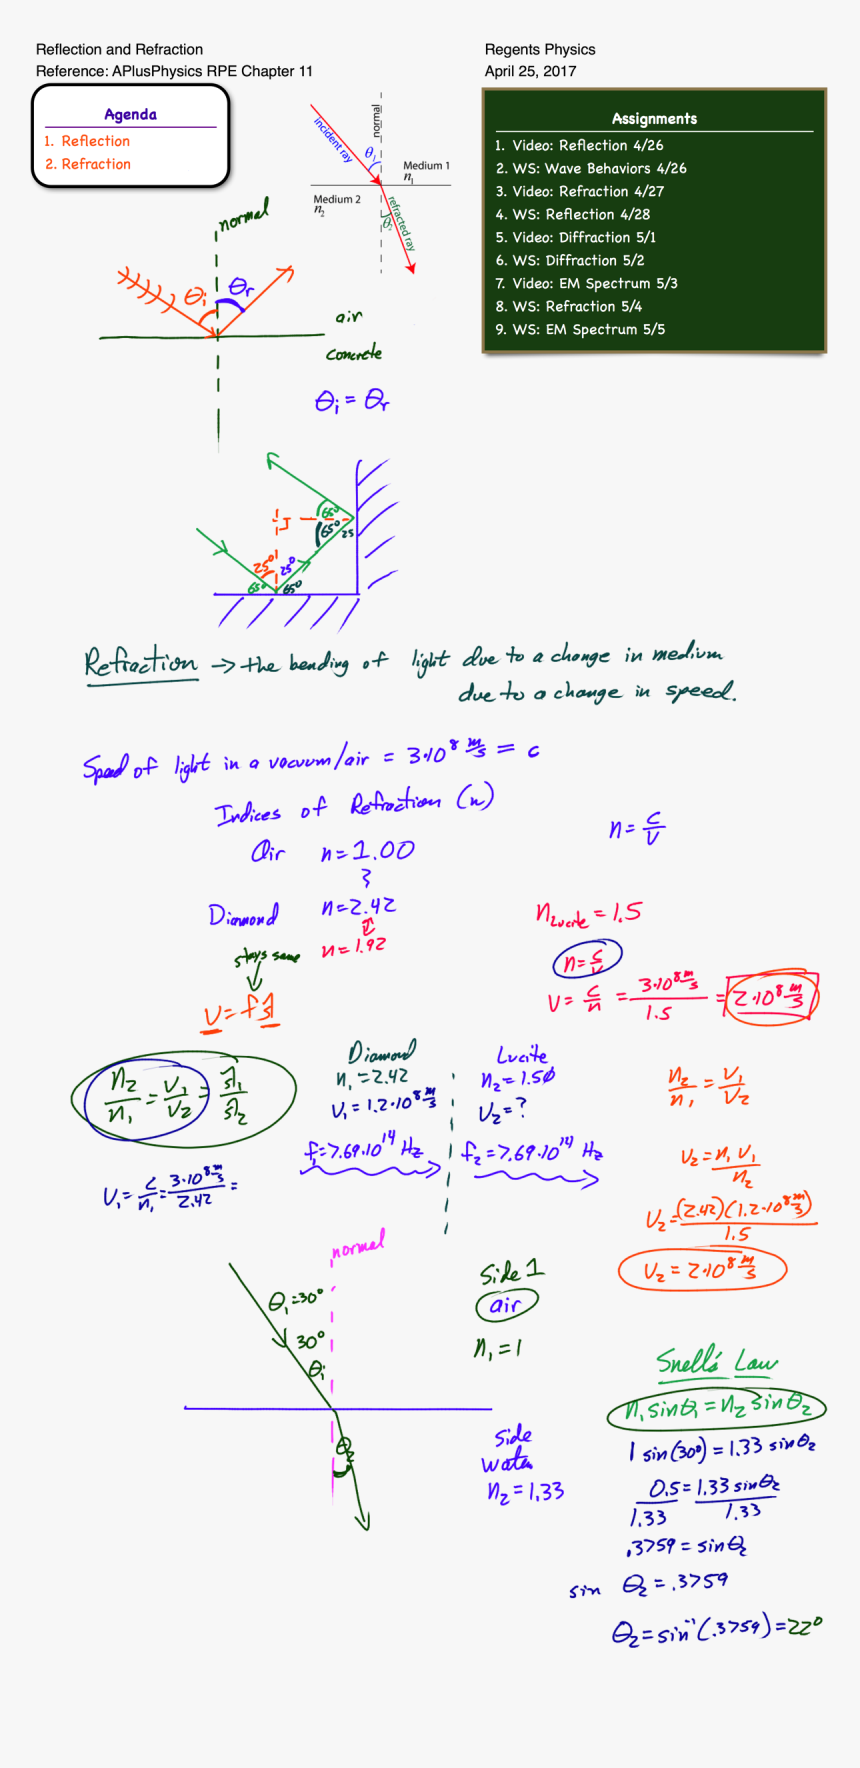 Reflection and Refraction
Reference: APlusPhysics RPE Chapter 11
Regents Physics
April 25, 2017
Agenda
1. Reflection
2. Refraction
Assignments
1. Video: Reflection 4/26
2. WS: Wave Behaviors 4/26
3. Video: Refraction 4/27
4. WS: Reflection 4/28
5. Video: Diffraction 5/1
6. WS: Diffraction 5/2
7. Video: EM Spectrum 5/3
8. WS: Refraction 5/4
9. WS: EM Spectrum 5/5
incident ray
normal
θ₁
Medium 1
n₁
Medium 2
n₂
θ₂
refracted ray
normal
θi θr
air
concrete
θi = θr
65°
65° 25
25° 25°
65° 65°
Refraction → the bending of light due to a change in medium
due to a change in speed.
Speed of light in a vacuum/air = 3·10⁸ m/s = c
Indices of Refraction (n)
n = c/v
Air n = 1.00
Diamond n = 2.42
n = 1.92
n Lucite = 1.5
n = c/v
v = c/n = 3·10⁸ m/s / 1.5 = 2·10⁸ m/s
stays same
v = fλ
n₂/n₁ = v₁/v₂ = λ₁/λ₂
Diamond
n₁ = 2.42
v₁ = 1.2·10⁸ m/s
f₁ = 7.69·10¹⁴ Hz
Lucite
n₂ = 1.50
v₂ = ?
f₂ = 7.69·10¹⁴ Hz
n₂/n₁ = v₁/v₂
v₂ = n₁v₁/n₂
v₂ = (2.42)(1.2·10⁸ m/s)/1.5
v₂ = 2·10⁸ m/s
v₁ = c/n₁ = 3·10⁸ m/s / 2.42 =
normal
θ₁ = 30°
30°
θi
θ₂
side 1
air
n₁ = 1
side
water
n₂ = 1.33
Snell's Law
n₁ sinθ₁ = n₂ sinθ₂
1 sin(30°) = 1.33 sinθ₂
0.5/1.33 = 1.33 sinθ₂/1.33
.3759 = sinθ₂
sin θ₂ = .3759
θ₂ = sin⁻¹(.3759) = 22°